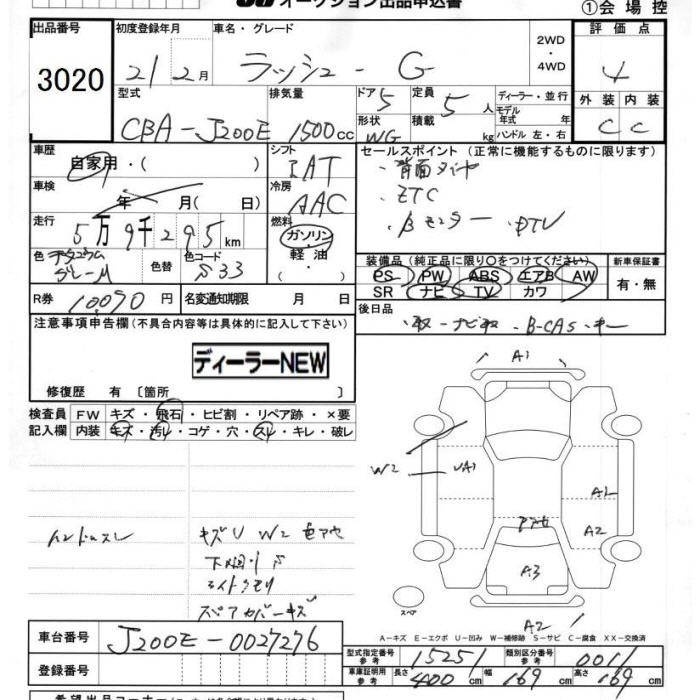 オークション出品申込書
①会場控
出品番号
3020
初度登録年月
21 2月
車名・グレード
ラッシュ - G
2WD
・
4WD
評価点
4
外装 内装
C C
型式
CBA-J200E
排気量
1500cc
ドア 5
形状 WG
定員 5人
積載 kg
ディーラー・並行
モデル年式 年
ハンドル 左・右
車歴
自家用・( )
シフト
IAT
セールスポイント (正常に機能するものに限ります)
・背面タイヤ
・ETC
・Bモニター ・DTV
車検
年 月( 日)
冷房
AAC
走行
5万9千295km
燃料
ガソリン
軽油
・
色
チタニウムグレーM
色替
色コード
S33
装備品 (純正品に限り〇をつけてください)
PS PW ABS エアB AW
SR ナビ TV カワ
新車保証書
有・無
R券 10090円
名変通知期限 月 日
後日品
・取 ・ナビ取 ・B-CAS ・キー
注意事項申告欄(不具合内容等は具体的に記入して下さい)
ディーラーNEW
修復歴 有〔箇所 〕
検査員記入欄
FW キズ・飛石・ヒビ割・リペア跡・×要
内装 キズ・汚れ・コゲ・穴・スレ・キレ・破レ
ハンドルスレ
キズU W2
下廻りS
ライトクモリ
スペアカバーキズ
A1
W2
UA1
A1
A2
A3
A2
スペア
A-キズ E-エクボ U-凹み W-補修跡 S-サビ C-腐食 XX-交換済
車台番号
J200E-0027276
登録番号
型式指定番号 参考 15251
類別区分番号 参考 0011
車庫証明用 参考 長さ 400cm 幅 169cm 高さ 169cm